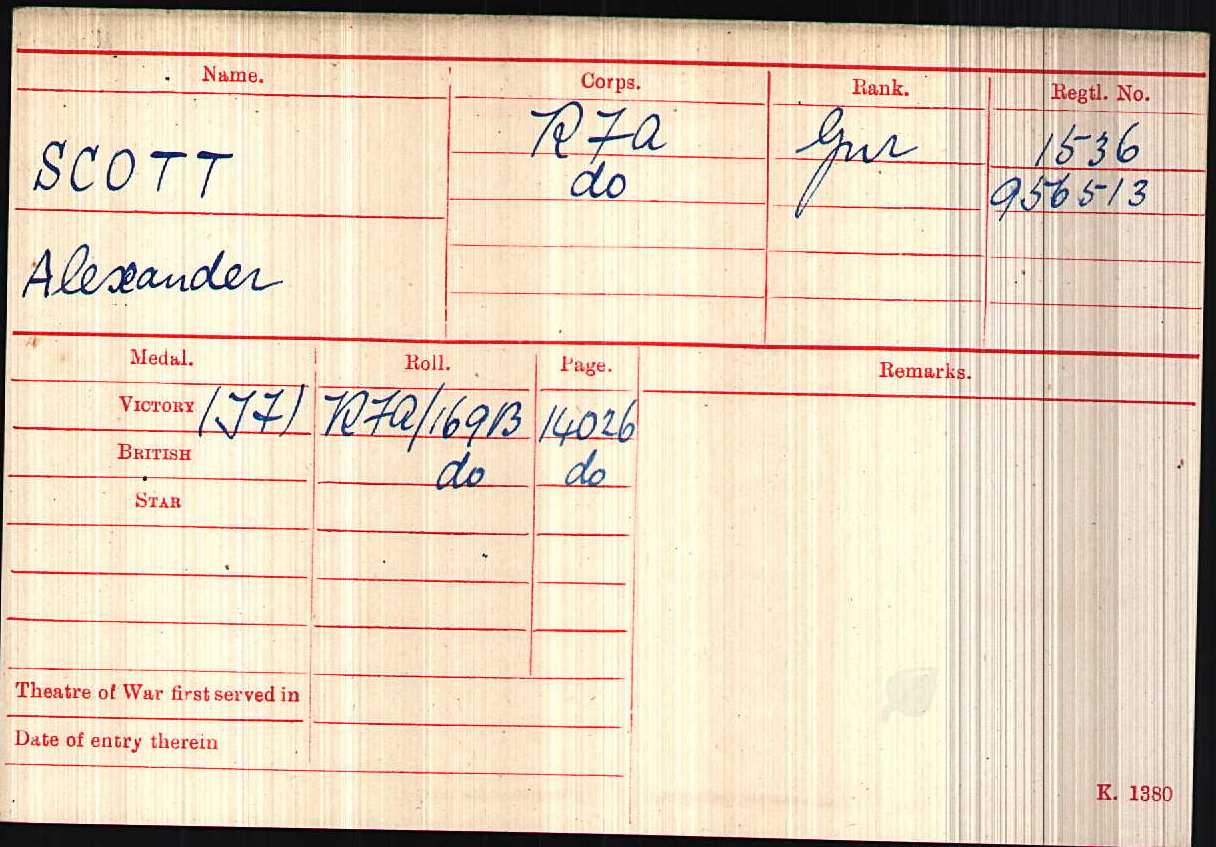 Name. Corps. Rank. Regtl. No.
SCOTT RFA Gnr 1536
do 956513
Alexander
Medal. Roll. Page. Remarks.
VICTORY (TF) RFA/169B 14026
BRITISH do do
STAR
Theatre of War first served in
Date of entry therein
K. 1380